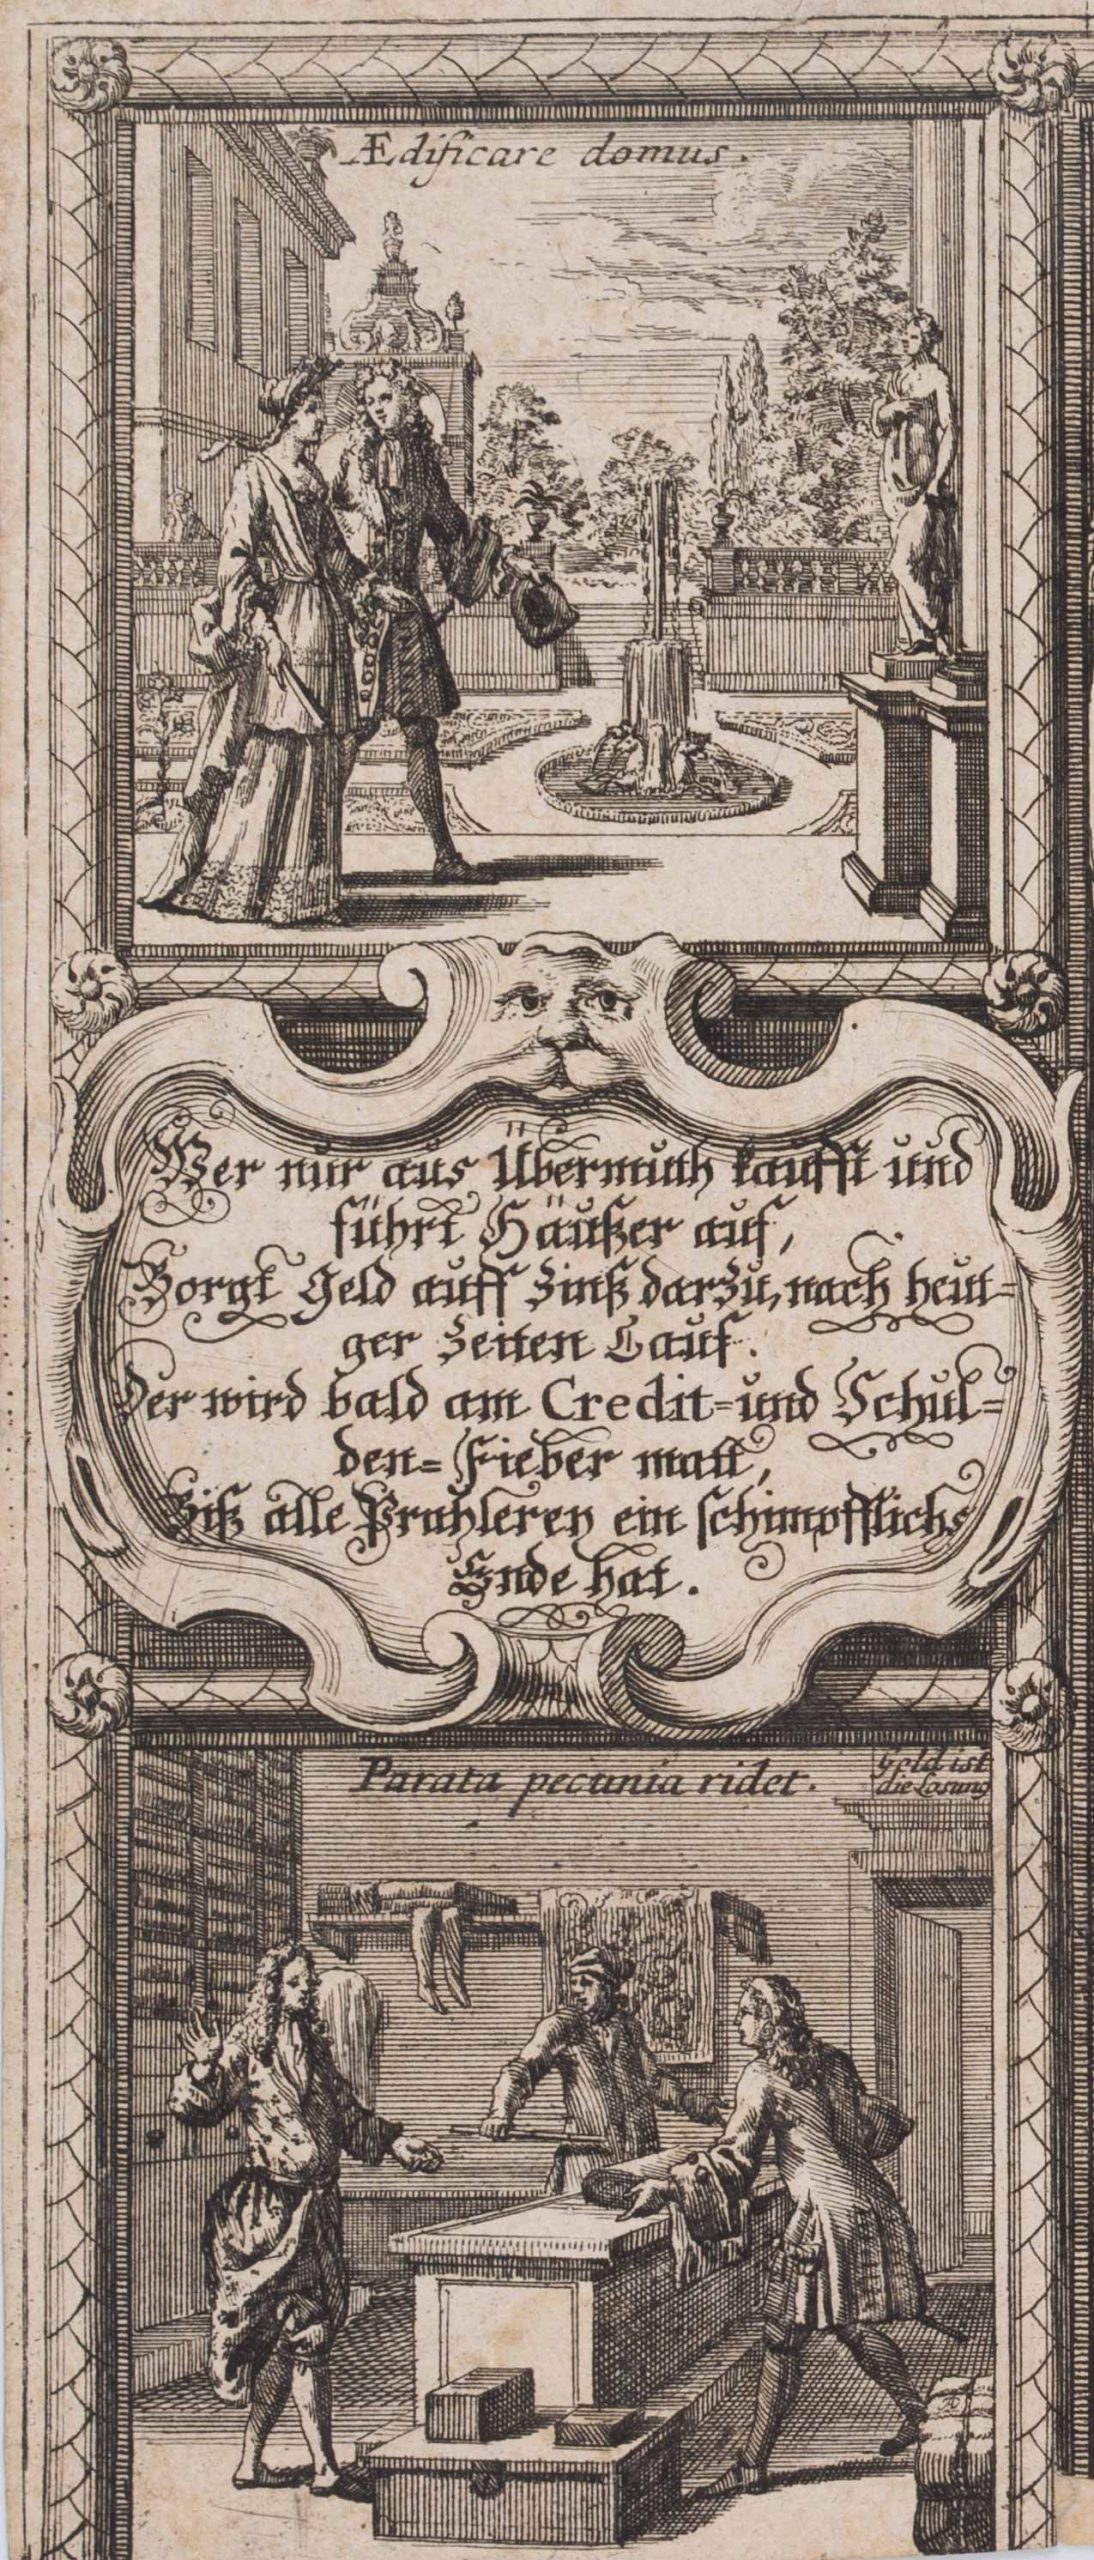 Ædificare domus.
Wer nur aus Übermuth kaufft und
führt Häußer auf,
Borgt Geld auff Zinß darzu, nach heut=
ger Zeiten Lauf.
Der wird bald am Credit=und Schul=
den=Fieber matt,
Biß alle Prahlerey ein schimpfflichs
Ende hat.
Parata pecunia ridet.
Geld ist
die Losung